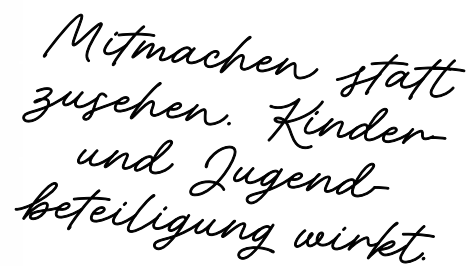 Mitmachen statt
zusehen. Kinder-
und Jugend-
beteiligung wirkt.